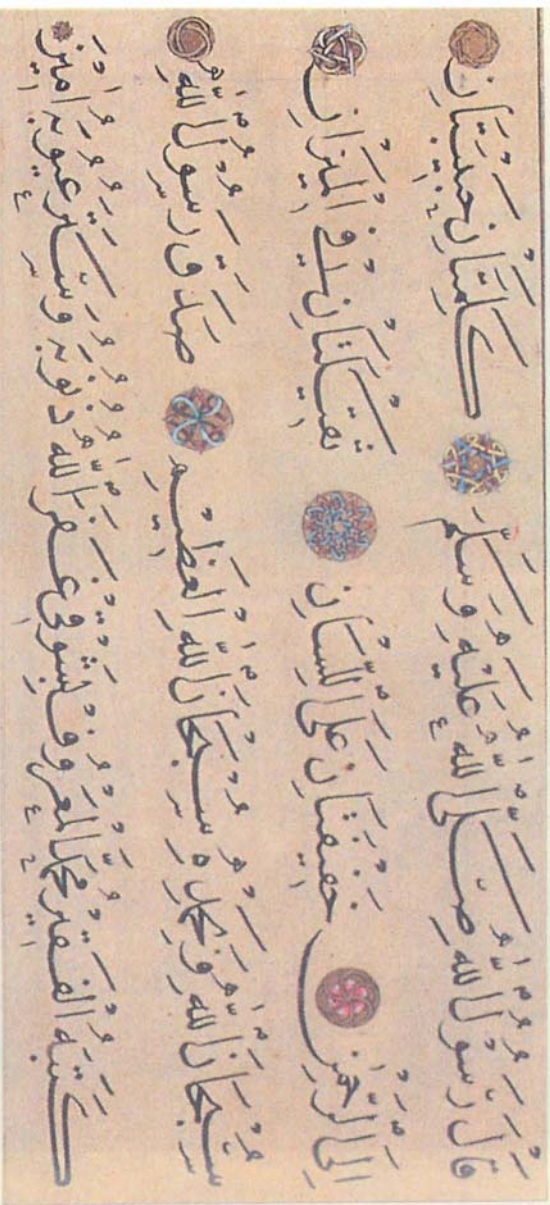 قَالَ رَسُولُ اللّٰهِ صَلَّى اللّٰهُ عَلَيْهِ وَسَلَّمَ كَلِمَتَانِ حَبِيبَتَانِ
اِلَى الرَّحْمٰنِ خَفِيفَتَانِ عَلَى اللِّسَانِ ثَقِيلَتَانِ فِي الْمِيزَانِ
سُبْحَانَ اللّٰهِ وَبِحَمْدِهِ سُبْحَانَ اللّٰهِ الْعَظِيمِ صَدَقَ رَسُولُ اللّٰهِ
كَتَبَهُ الْفَقِيرُ مُحَمَّدُ الْمَعْرُوفُ بِشَوْقِي غَفَرَ اللّٰهُ ذُنُوبَهُ وَسَتَرَ عُيُوبَهُ اٰمِينَ